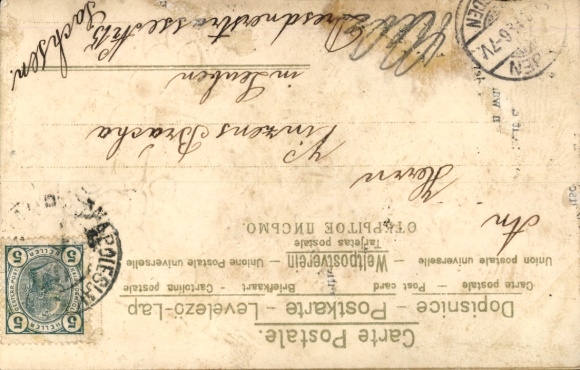 Carte Postale.
Dopisnice - Postkarte - Levelező-Lap
Carte postale - Post card - Briefkaart - Cartolina postale
Union postale universelle - Weltpostverein - Unione Postale universelle
Tarjetas postale
ОТКРЫТОЕ ПИСЬМО.
An
Herrn
Vinzens Brácha
in Leuben
Dresdnerstrasse
Sachsen.
5 HELLER 5
5 HELLER 5
DEN
6-7V